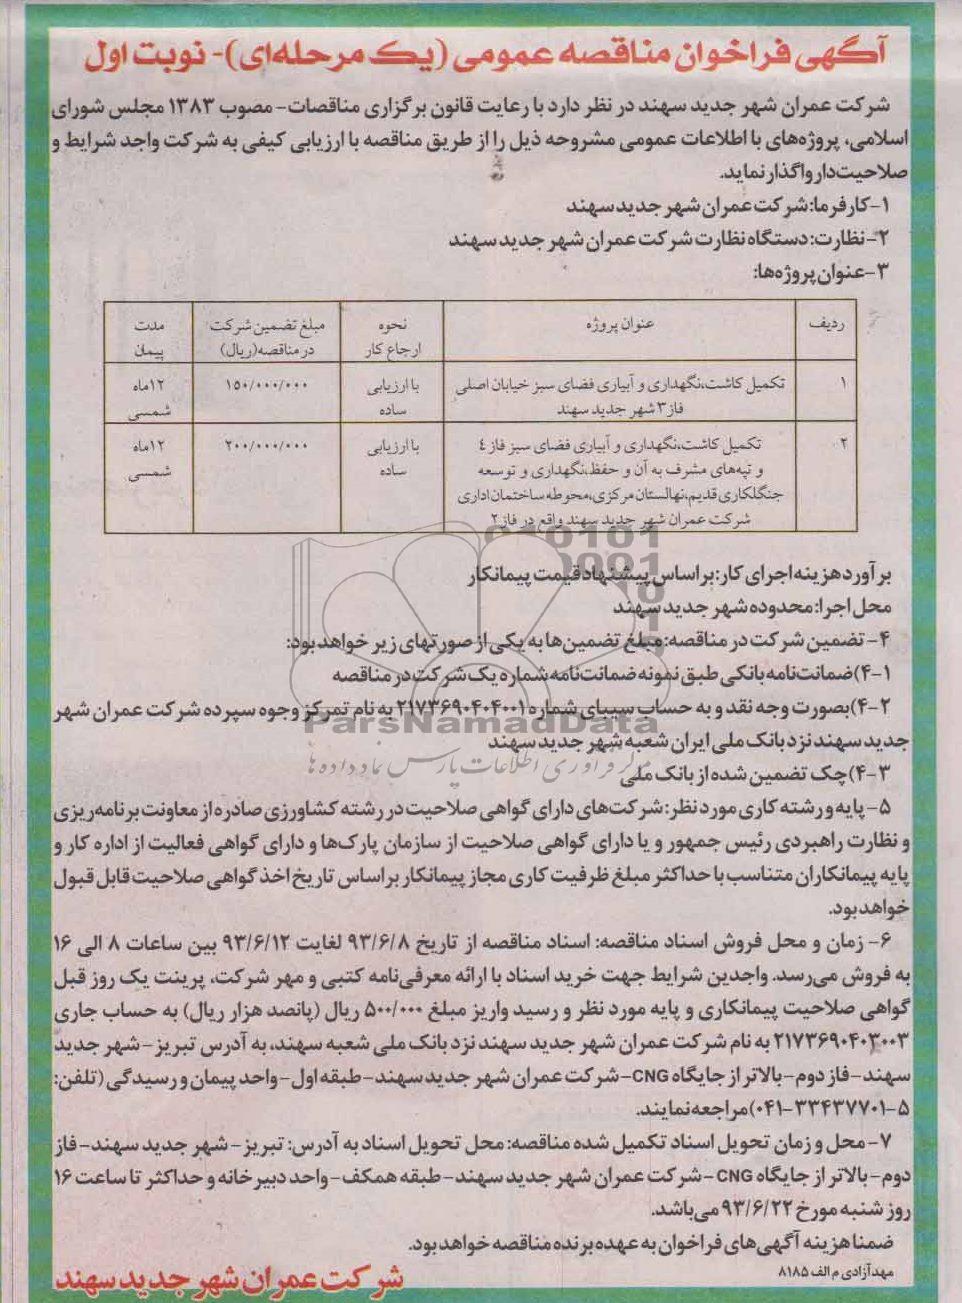 آگهی فراخوان مناقصه عمومی (یک مرحله‌ای)- نوبت اول
شرکت عمران شهر جدید سهند در نظر دارد با رعایت قانون برگزاری مناقصات- مصوب ۱۳۸۳ مجلس شورای
اسلامی، پروژه‌های با اطلاعات عمومی مشروحه ذیل را از طریق مناقصه با ارزیابی کیفی به شرکت واجد شرایط و
صلاحیت‌دار واگذار نماید.
۱-کارفرما: شرکت عمران شهر جدید سهند
۲- نظارت: دستگاه نظارت شرکت عمران شهر جدید سهند
۳-عنوان پروژه‌ها:
ردیف عنوان پروژه نحوه ارجاع کار مبلغ تضمین شرکت در مناقصه(ریال) مدت پیمان
۱ تکمیل کاشت،نگهداری و آبیاری فضای سبز خیابان اصلی فاز۳شهر جدید سهند با ارزیابی ساده ۱۵۰/۰۰۰/۰۰۰ ۱۲ماه شمسی
۲ تکمیل کاشت،نگهداری و آبیاری فضای سبز فاز ٤ و تپه‌های مشرف به آن و حفظ،نگهداری و توسعه جنگلکاری قدیم،نهالستان مرکزی،محوطه ساختمان اداری شرکت عمران شهر جدید سهند واقع در فاز۲ با ارزیابی ساده ۲۰۰/۰۰۰/۰۰۰ ۱۲ماه شمسی
برآورد هزینه اجرای کار: براساس پیشنهاد قیمت پیمانکار
محل اجرا: محدوده شهر جدید سهند
۴- تضمین شرکت در مناقصه: مبلغ تضمین‌ها به یکی از صورتهای زیر خواهد بود:
۴-۱)ضمانت‌نامه بانکی طبق نمونه ضمانت‌نامه شماره یک شرکت در مناقصه
۴-۲)بصورت وجه نقد و به حساب سیبای شماره ۲۱۷۳۶۹۰۴۰۴۰۰۱ به نام تمرکز وجوه سپرده شرکت عمران شهر
جدید سهند نزد بانک ملی ایران شعبه شهر جدید سهند
۴-۳)چک تضمین شده از بانک ملی
۵- پایه و رشته کاری مورد نظر: شرکت‌های دارای گواهی صلاحیت در رشته کشاورزی صادره از معاونت برنامه‌ریزی
و نظارت راهبردی رئیس جمهور و یا دارای گواهی صلاحیت از سازمان پارک‌ها و دارای گواهی فعالیت از اداره کار و
پایه پیمانکاران متناسب با حداکثر مبلغ ظرفیت کاری مجاز پیمانکار براساس تاریخ اخذ گواهی صلاحیت قابل قبول
خواهد بود.
۶- زمان و محل فروش اسناد مناقصه: اسناد مناقصه از تاریخ ۹۳/۶/۸ لغایت ۹۳/۶/۱۲ بین ساعات ۸ الی ۱۶
به فروش می‌رسد. واجدین شرایط جهت خرید اسناد با ارائه معرفی‌نامه کتبی و مهر شرکت، پرینت یک روز قبل
گواهی صلاحیت پیمانکاری و پایه مورد نظر و رسید واریز مبلغ ۵۰۰/۰۰۰ ریال (پانصد هزار ریال) به حساب جاری
۲۱۷۳۶۹۰۴۰۳۰۰۳ به نام شرکت عمران شهر جدید سهند نزد بانک ملی شعبه سهند، به آدرس تبریز- شهر جدید
سهند- فاز دوم- بالاتر از جایگاه CNG- شرکت عمران شهر جدید سهند- طبقه اول- واحد پیمان و رسیدگی (تلفن:
۵-۳۳۴۳۷۷۰۱-۰۴۱) مراجعه نمایند.
۷- محل و زمان تحویل اسناد تکمیل شده مناقصه: محل تحویل اسناد به آدرس: تبریز- شهر جدید سهند- فاز
دوم- بالاتر از جایگاه CNG - شرکت عمران شهر جدید سهند- طبقه همکف- واحد دبیرخانه و حداکثر تا ساعت ۱۶
روز شنبه مورخ ۹۳/۶/۲۲ می‌باشد.
ضمنا هزینه آگهی‌های فراخوان به عهده برنده مناقصه خواهد بود.
مهد آزادی م الف ۸۱۸۵
شرکت عمران شهر جدید سهند
ParsNamadData
مرکز فرآوری اطلاعات پارس نماد داده‌ها